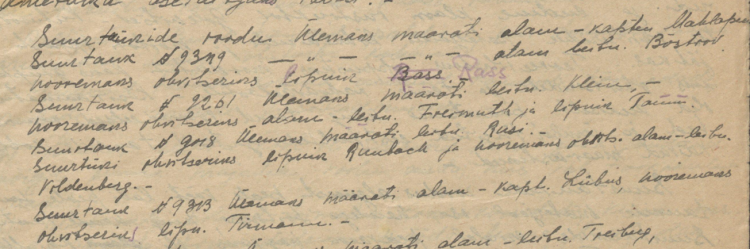 Suurtankide roodu ülemaks määrati alam-kapten
Suurtank № 9349 — " — — " — alam leitn. Böstrov.
nooremaks ohvitseriks lipnik Bass. Rass
Suurtank № 2201 ülemaks määrati leitn. Klein, -
nooremaks ohvitseriks alam-leitn. Freimuth ja lipnik Tamm.
Suurtank № 9018 ülemaks määrati leitn. Rusi. -
Suurtanki ohvitseriks lipnik Runback ja nooremaks ohvits. alam-leitn.
Voldenberg. -
Suurtank № 9313 ülemaks määrati alam-kapt. Lübus, nooremaks
ohvitseriks lipn. Tirmann. -
määrati alam-leitn. Freiberg,